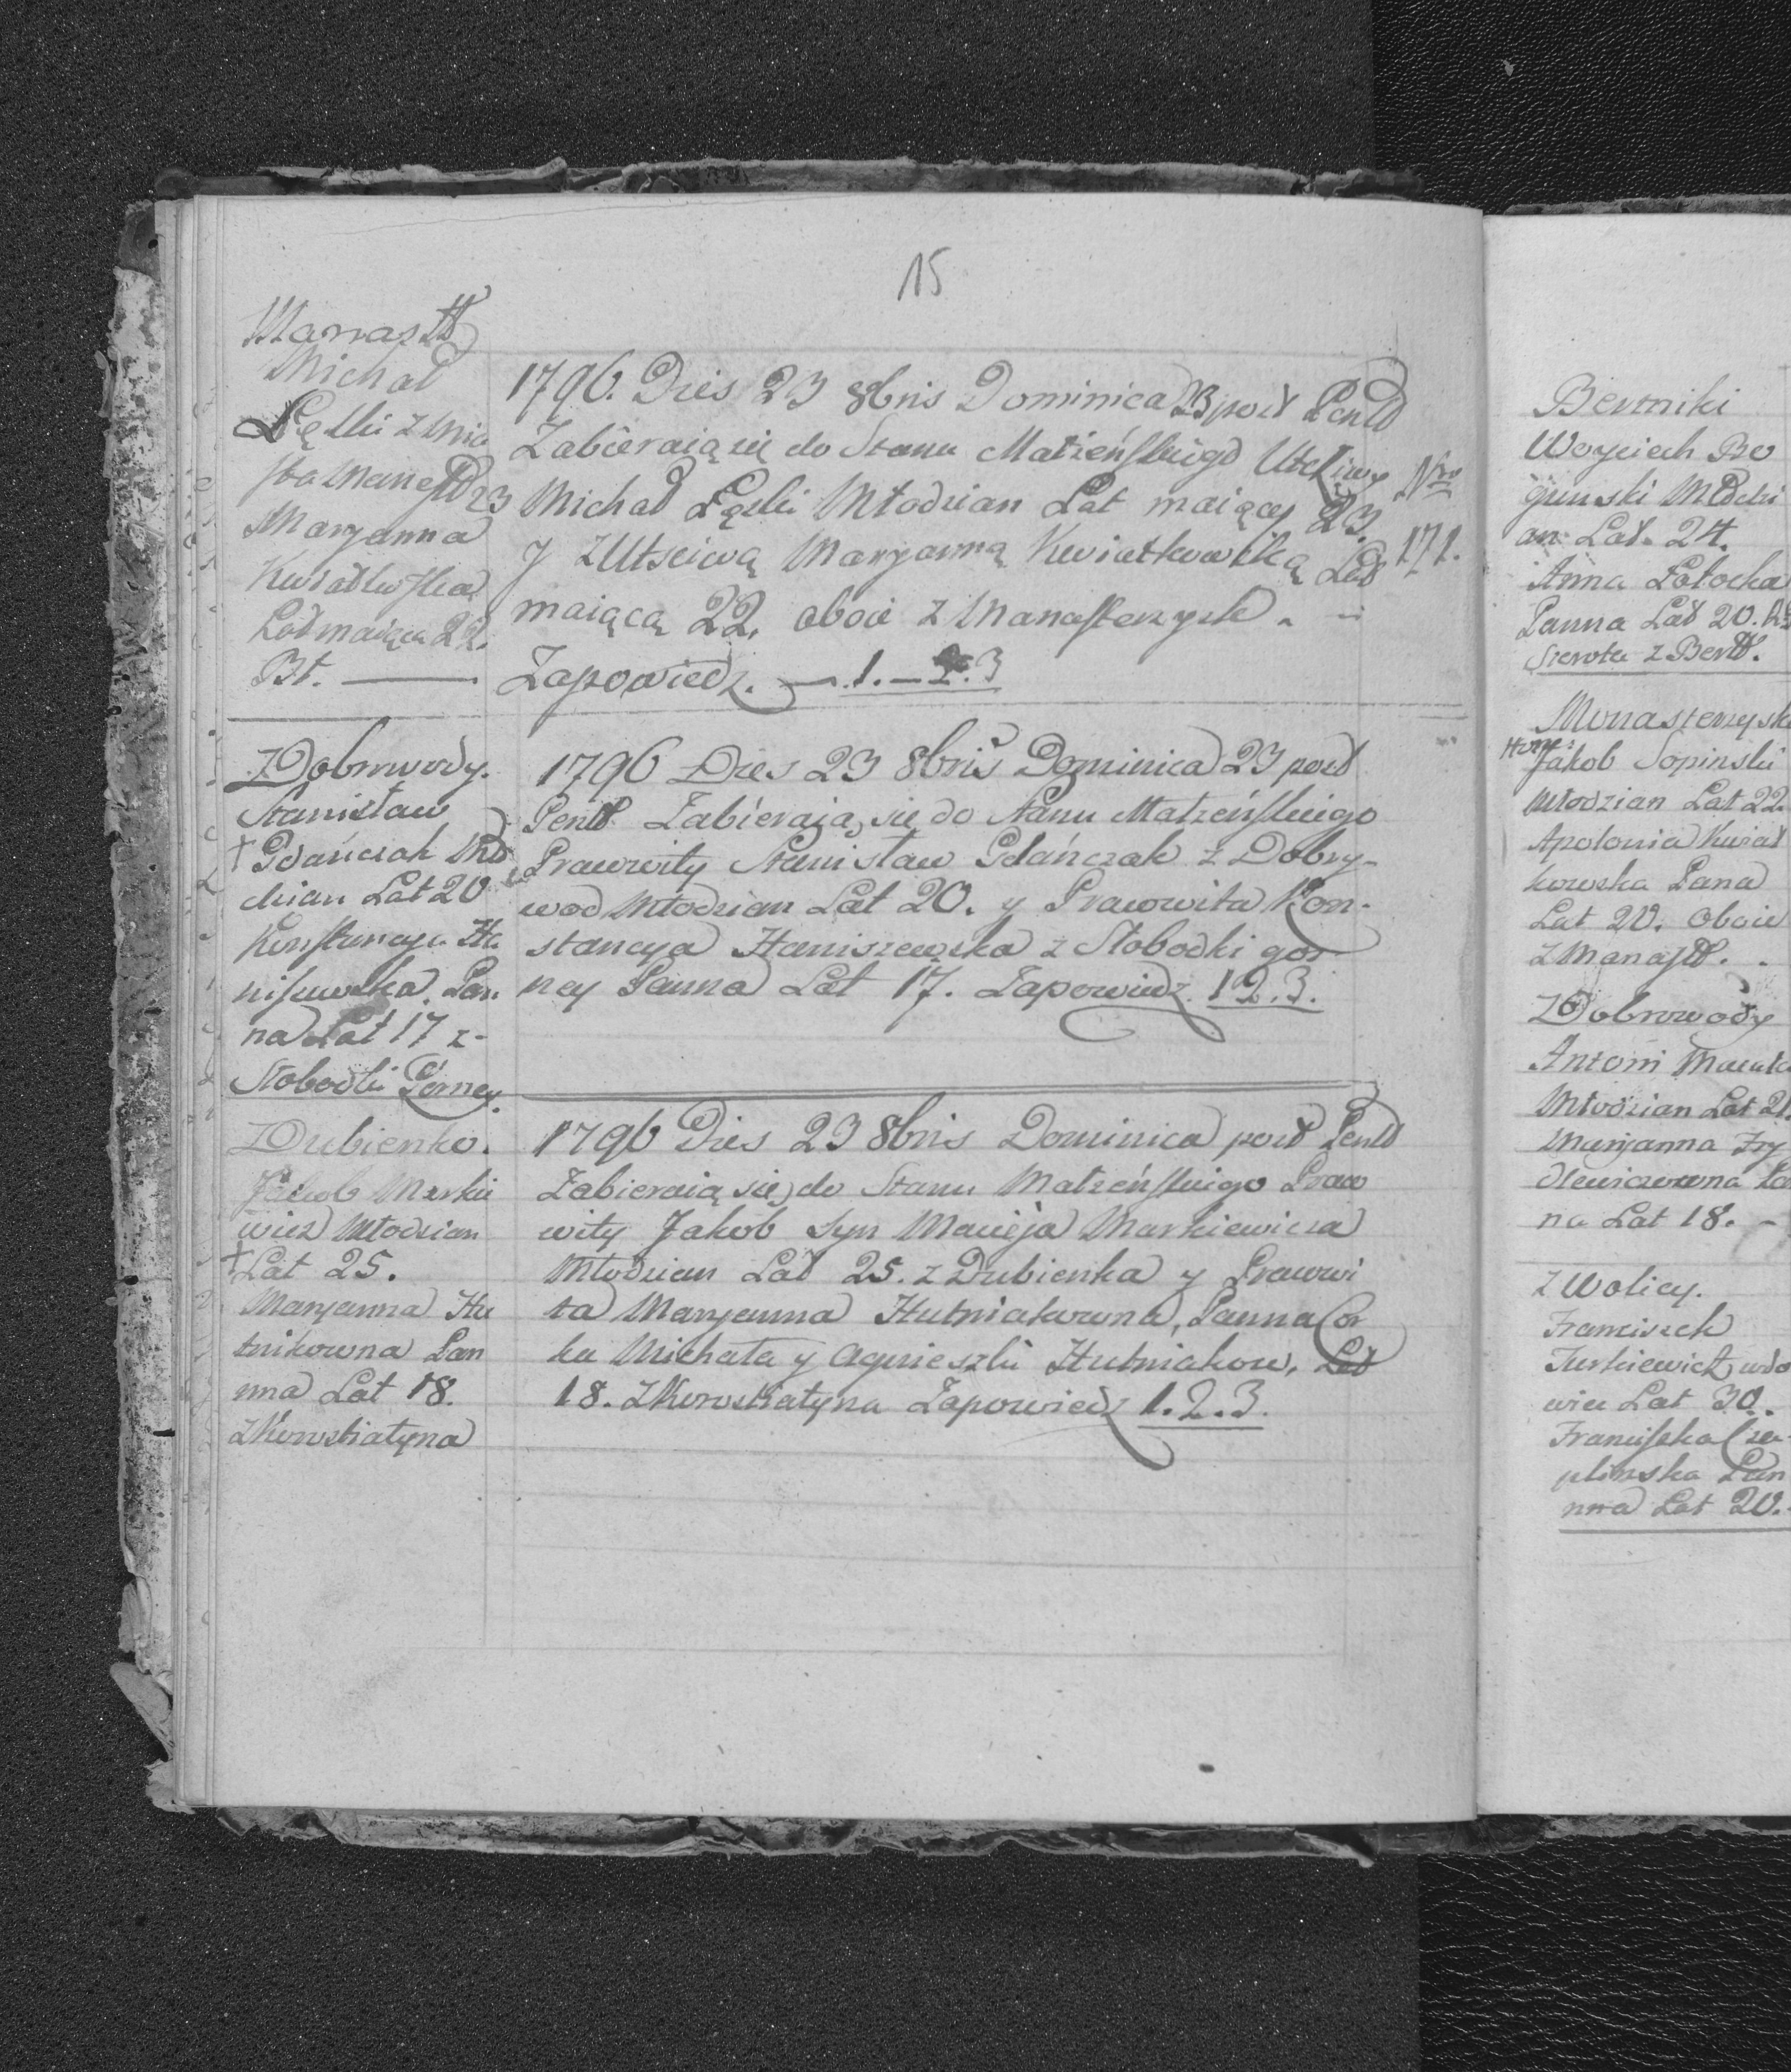 15
Manast
Michał
Łęski z Mia
sta Manast 23
Maryanna
Kwiatkwska
Lat maiąca 22.
Bt. —
1796. Dies 23 8bris Dominica 23 post Pent
Zabieraią się do Stanu Małżeńskiego Utściwy
Michał Łęski Młodzian Lat maiący 23.
y z Utsciwą Maryanną Kwiatkowską Lat
maiącą 22. oboie z Manasterzysk. —
Zapowiedz. — . 1. — 2. 3
Nro
171.
Z Dobrowody.
Stanisław
† Gdańczak Mło
dzian Lat 20
Konstancya Ha
niszewska. Pan
na Lat 17 z-
Słobodki Górney.
1796 Dies 23 8bris Dominica 23 post
Pent Zabieraią się do Stanu Małżeńskiego
Prawowity Stanisław Gdańczak z Dobry-
wod Młodzian Lat 20. y Prawowita Kon-
stancya Haniszewska z Słobodki gor
ney Panna Lat 17. Zapowiedz. 1 2. 3.
Z Dubienko.
Jakob Markie
wicz Młodzian
† Lat 25.
Maryanna Hu
tnikowna Pan
nna Lat 18.
Z Kowskiatyna
1796 Dies 23 8bris Dominica post Pent
Zabieraią się do Stanu Małżeńskiego Praw
wity Jakob syn Macieja Markiewicza
Młodzian Lat 25. z Dubienka y Prawwi
ta Maryanna Hutniakowna, Panna Cor
ka Michała y Agnieszki Hutniakow, Lat
18. Z Kowskiatyna Zapowiedz 1. 2. 3.
Berzniki
Woyciech Bo
gunski Młodzi
an Lat 24.
Anna Potocka
Panna Lat 20.
Sierota z Bert.
Monasterzysk
Jakob Sopinski
Młodzian Lat 22.
Apolonia Kwiat
kowska Pana
Lat 20. Oboie
z Manast.
Z Dobrowody
Antoni
Młodzian Lat 2
Maryanna Fry
dlewiczowna Pa
na Lat 18. -
z Wolicy.
Franciszek
Jurkiewicz wdo
wiec Lat 30.
Franciszka Cza
plinska Pan
nna Lat 20.